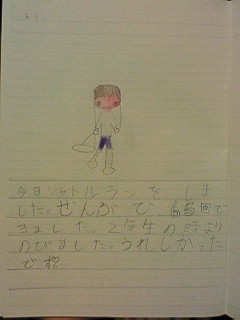 今日シャトルランを、しま
した。ぜんぶで、65回で
きました。2年生の時より
のびました。うれしかった
です。